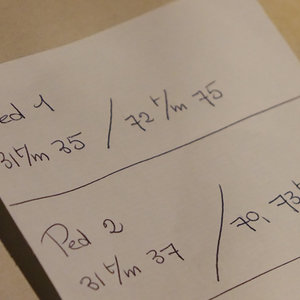 ed 1
31t/m 35 / 72t/m 75
Ped 2
31t/m 37 / 70, 73t